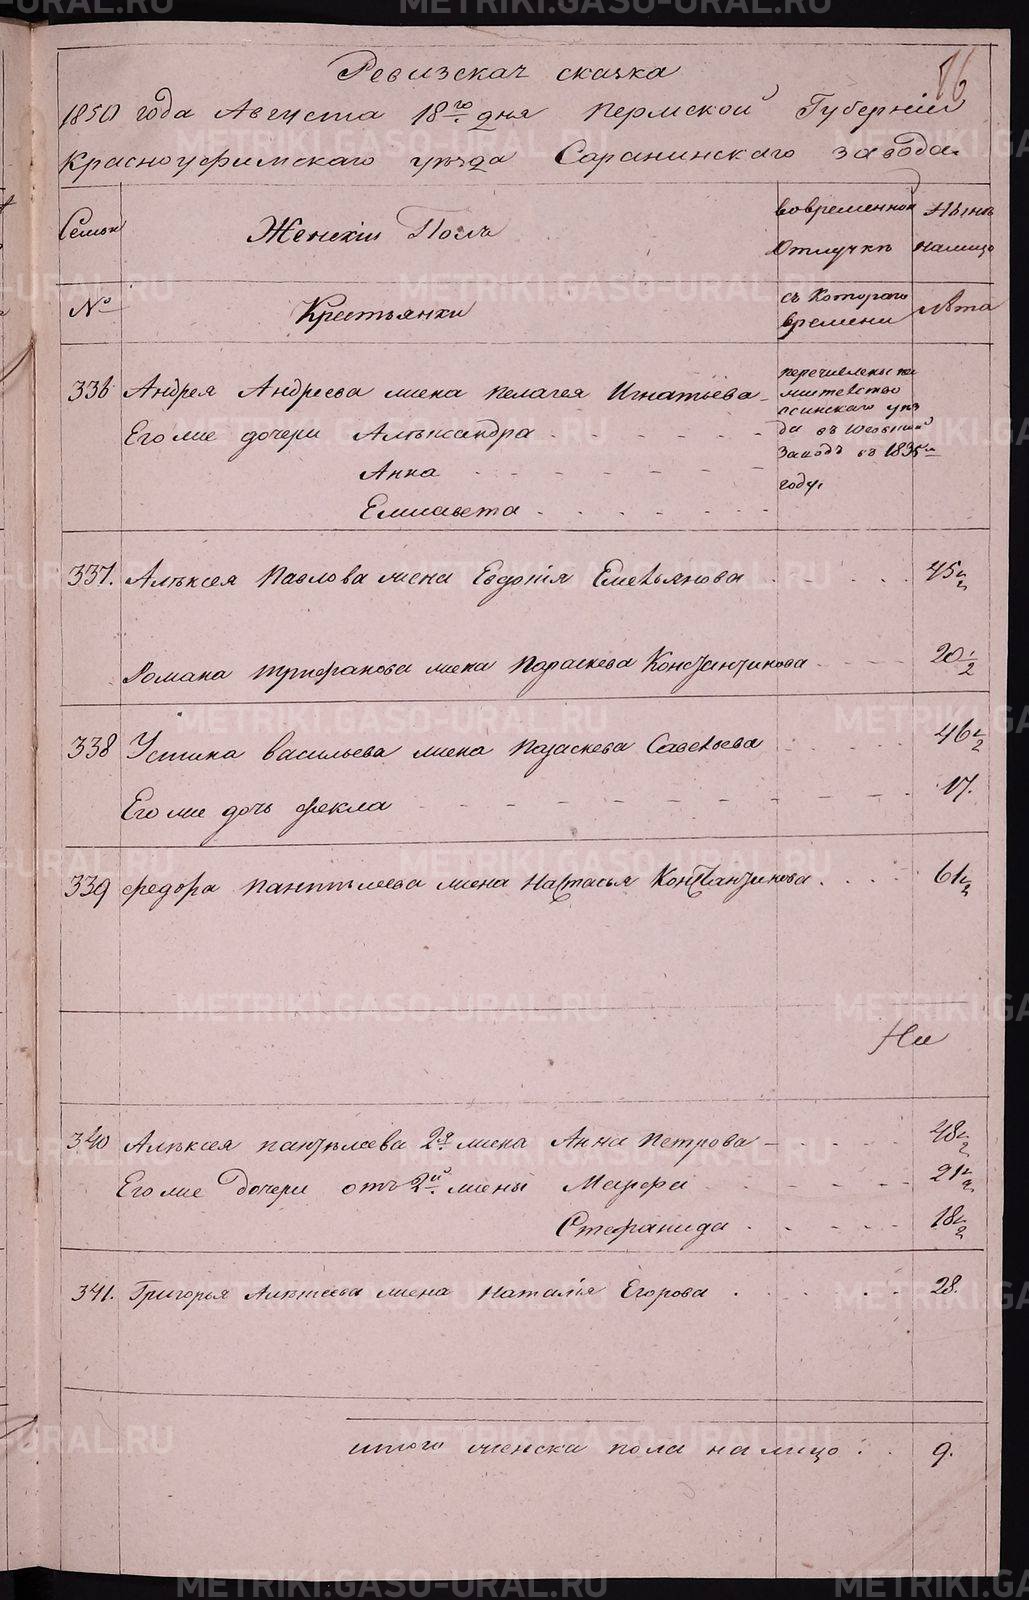 86
Ревизская сказка
1850 года Августа 18го дня Пермской Губернiи
Красноуфимскаго уезда Саранинскаго завода.
Семьи
Женскiй Полъ
вовременной отлучке
Ныне налицо
№
Крестьянки
съ котораго времени
Лета
336 Андрея Андреева жена Пелагея Игнатьева
Его же дочери Александра
Анна
Елисавета
перечислены на
жительство
Осинскаго уез
да въ
заводъ въ 1835м
году.
337. Алексея Павлова жена Евдокiя Емельянова 45 1/2
Романа Трифанова жена Параскева Константинова 20 1/2
338 Устина Васильева жена Параскева Савельева 46 1/2
Его же дочь Фекла 17.
339 Федора Пантилеева жена Настасья Константинова 61 1/2
340 Алексея Пантелеева 2я жена Анна Петрова 48 1/2
Его же дочери отъ 2й жены Марфа 21 1/2
Стефанида 18 1/2
341. Григорья Алексеева жена Наталiя Егорова 28.
итого женска пола налицо 9.
METRIKI.GASO-URAL.RU